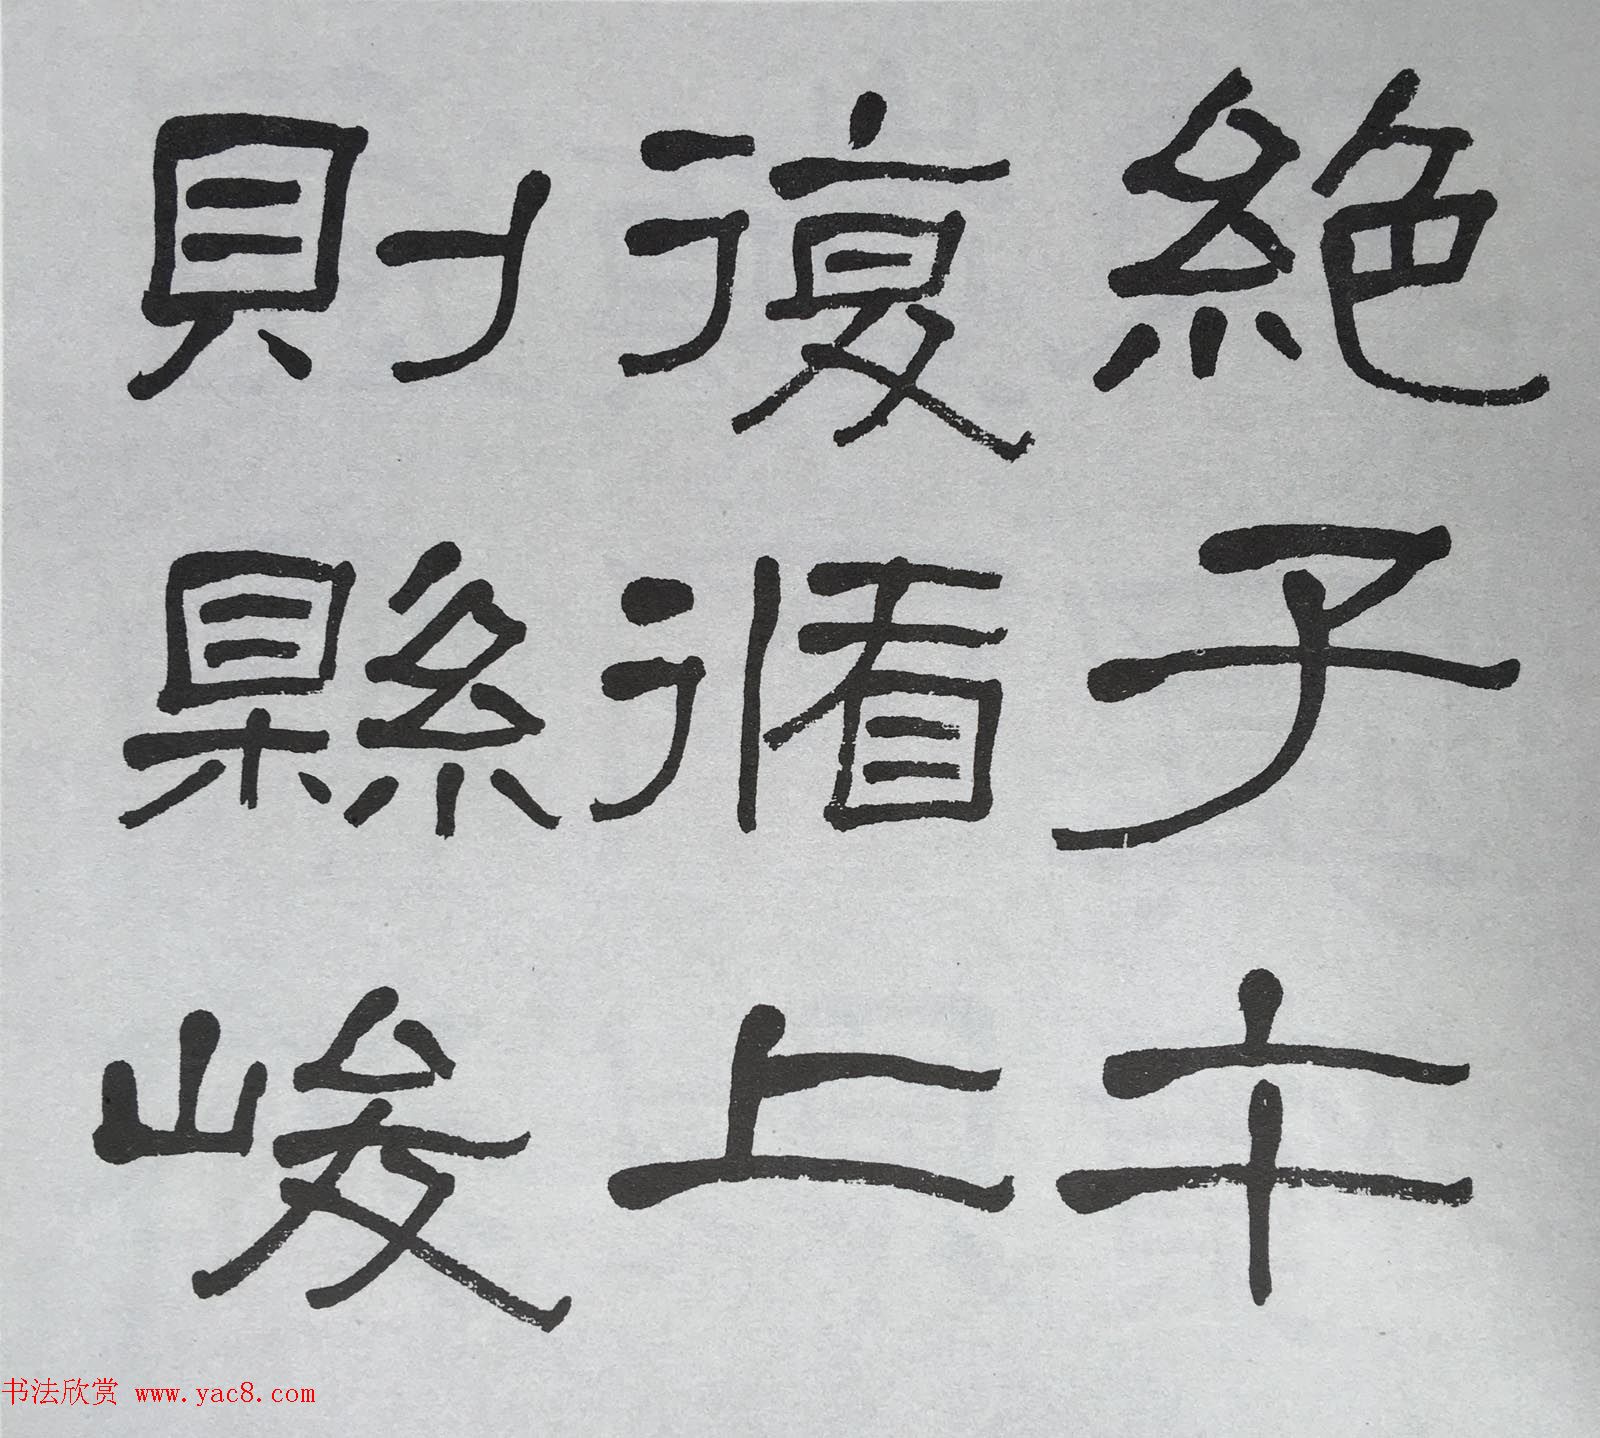 絕子午
復循上
則縣峻
书法欣赏 www.yac8.com